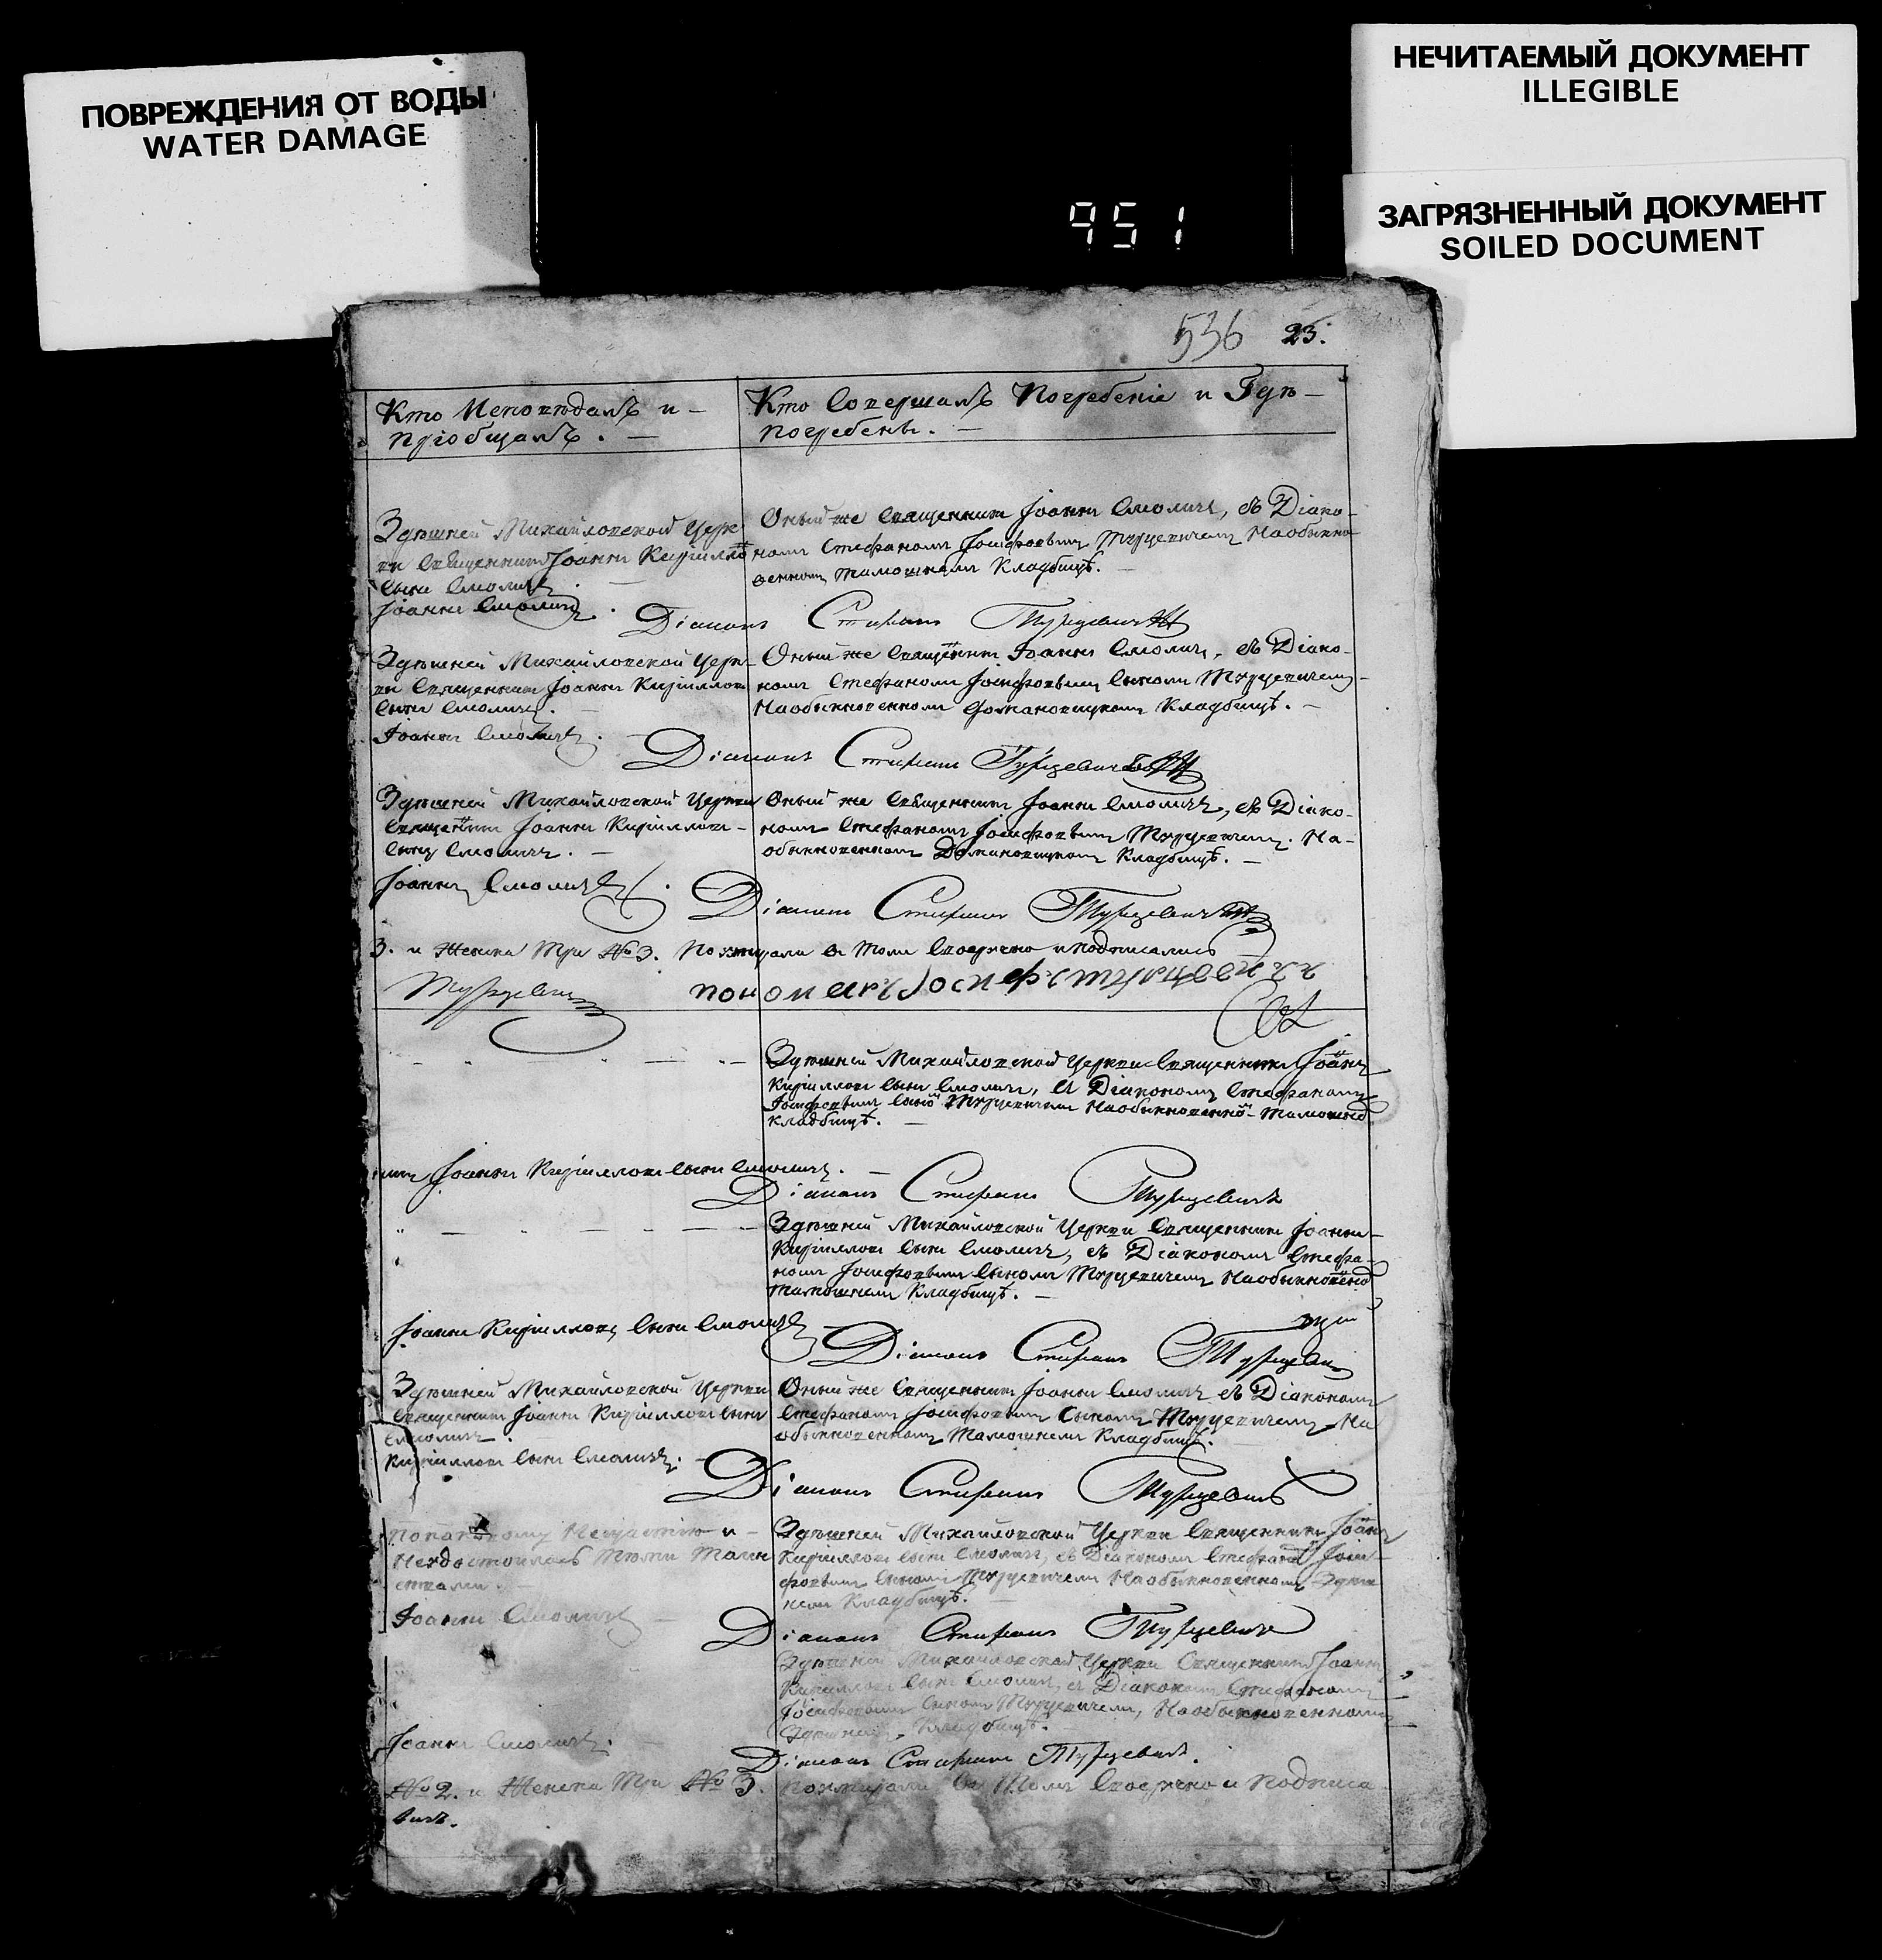 ПОВРЕЖДЕНИЯ ОТ ВОДЫ
WATER DAMAGE
НЕЧИТАЕМЫЙ ДОКУМЕНТ
ILLEGIBLE
ЗАГРЯЗНЕННЫЙ ДОКУМЕНТ
SOILED DOCUMENT
951
536 23.
Кто Исповѣдалъ и –
пріобщалъ. –
Кто Совершалъ Погребеніе и Гдѣ –
погребены. –
Здѣшней Михайловской Церк
ви Священникъ Іоаннъ Кирилло
сынъ Смоличъ
Іоаннъ Смоличъ.
Оный же Священникъ Іоаннъ Смоличъ, съ Діако-
номъ Стефаномъ Іосифовымъ Турцевичемъ На обыкно-
венномъ тамошнемъ Кладбищѣ. –
Діаконъ Стефанъ Турцевичъ
Здѣшней Михайловской Церк-
ви Священникъ Іоаннъ Кирилловъ
сынъ Смоличъ. –
Іоаннъ Смоличъ.
Оный же Священникъ Іоаннъ Смоличъ, съ Діако-
номъ Стефаномъ Іосифовымъ сыномъ Турцевичемъ –
На обыкновенномъ Домановицкомъ Кладбищѣ. –
Діаконъ Стефанъ Турцевичъ
Здѣшней Михайловской Церкви
Священникъ Іоаннъ Кирилловъ –
сынъ Смоличъ. –
Іоаннъ Смоличъ.
Оный же Священникъ Іоаннъ Смоличъ, съ Діако-
номъ Стефаномъ Іосифовымъ Турцевичемъ. На-
обыкновенномъ Домановицкомъ Кладбищѣ. –
Діаконъ Стефанъ Турцевичъ
3. и Женска три № 3. По умирали въ томъ Своеручно и подписались
Турцевичъ
пономарь Іосифъ Турцевичъ
Здѣшней Михайловской Церкви Священникъ Іоаннъ
Кирилловъ сынъ Смоличъ, съ Діакономъ Стефаномъ
Іосифовымъ сыномъ Турцевичемъ На обыкновенно- тамошнѣ
кладбищѣ. –
Іоаннъ Кирилловъ сынъ Смоличъ. –
Діаконъ Стефанъ Турцевичъ
Здѣшней Михайловской Церкви Священникъ Іоаннъ –
Кирилловъ сынъ Смоличъ, съ Діакономъ Стефа-
номъ Іосифовымъ Сыномъ Турцевичемъ На обыкновенно
тамошнемъ Кладбищѣ. –
Іоаннъ Кирилловъ сынъ Смоличъ
Діаконъ Стефанъ Турцевичъ
Здѣшней Михайловской Церкви
Священникъ Іоаннъ Кирилловъ сынъ
Смоличъ.
Кирилловъ сынъ Смоличъ. –
Оный же Священникъ Іоаннъ Смоличъ съ Діакономъ
Стефаномъ Іосифовымъ Сыномъ Турцевичемъ На
обыкновенномъ тамошнемъ Кладбищѣ.
Діаконъ Стефанъ Турцевичъ
Нещастію и –
Неудостоилась Тайн
ствами.
Іоаннъ Смоличъ –
Здѣшней Михайловской Церкви Священникъ Іоаннъ
Кирилловъ сынъ Смоличъ, съ Діакономъ Стефано Іоси-
фовымъ Сыномъ Турцевичемъ На обыкновенномъ Здѣш
немъ Кладбищѣ. –
Діаконъ Стефанъ Турцевичъ
Здѣшней Михайловской Церкви Священникъ Іоаннъ
Кирилловъ сынъ Смоличъ, съ Діакономъ Стефаномъ
Іосифовымъ Сыномъ Турцевичемъ, На обыкновенномъ
Здѣшнемъ Кладбищѣ.
Іоаннъ Смоличъ. –
Діаконъ Стефанъ Турцевичъ.
№ 2. и Женска три № 3. По умирали въ Томъ Своеручно и подписа
лись.